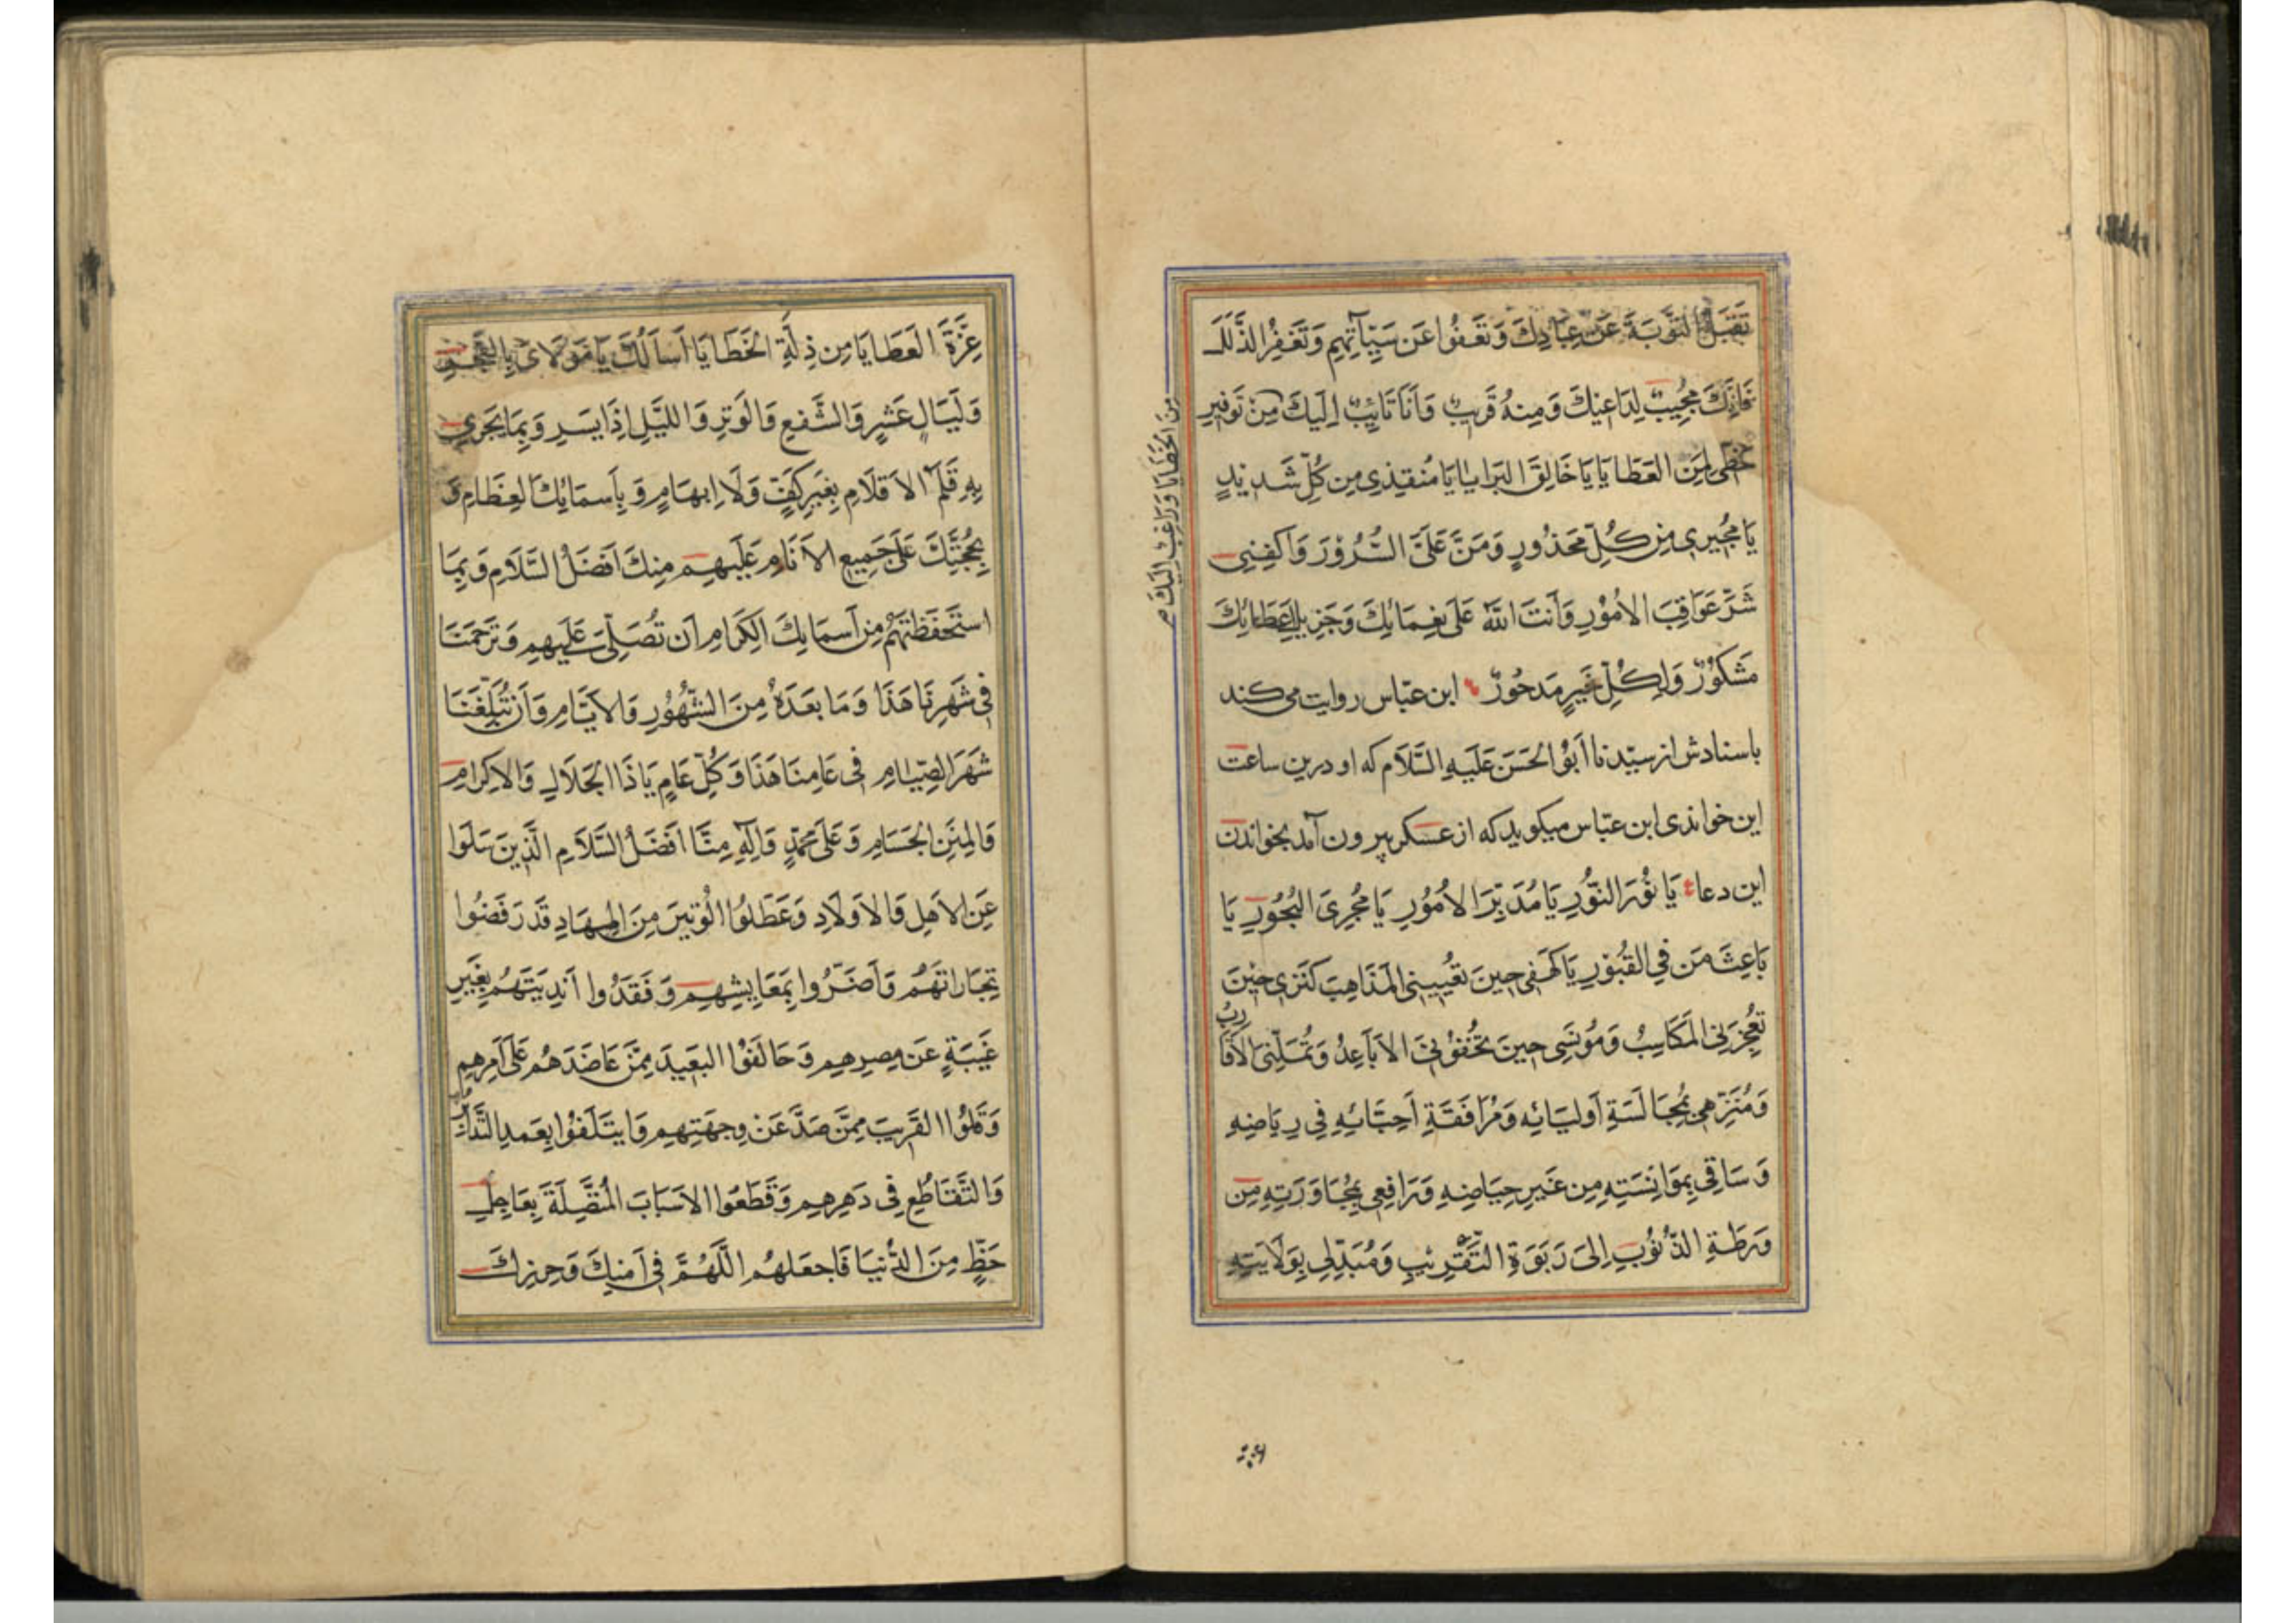 تَقَبَّلُ التَّوْبَةَ عَنْ عِبَادِكَ وَتَعْفُوا عَن سَيِّآتِهِم وَتَغْفِرُ الذَّلَلَ
فَاِنَّكَ مُجِيبٌ لِدَاعِيْكَ وَمِنْهُ قَرِيبٌ وَاَنَا تَائِبٌ اِلَيكَ مِنْ تَوْفِيرِ
حَظِّى مِنَ العَطَايَا يَا خَالِقَ البَرَايَا يَا مُنقِذِى مِن كُلِّ شَدِيْدٍ
يَا مُجِيرِى مِن كُلِّ مَحْذُورٍ وَمَنَّ عَلَىَّ السُّرُوْرَ وَاكفِنِى
شَرَّ عَوَاقِبَ الاُمُوْرِ وَأَنتَ اللّهُ عَلَى نِعَمَائِكَ وَجَزِيلِ عَطَائِكَ
مَشكُوْرٌ وَلِكُلِّ خَيرٍ مَدحُورٌ ابن عبّاس روايت مى كند
باسنادش از سيّدنا اَبُوْ الحَسَن عَلَيهِ السَّلَام كه او درين ساعت
اين خواندى ابن عبّاس ميكويد كه از عسكر بيرون آمد بخواندن
اين دعا يَا نُوْرَ النُّورِ يَا مُدَبِّرَ الاُمُوْرِ يَا مُجْرِىَ البُحُوْرِ يَا
بَاعِثَ مَن فِي القُبُوْرِ يَا كَهْفِى حِينَ تُعْيِينِى المَذَاهِبَ كَنْزِى حِيْنَ
تُعجِزُنِى المَكَاسِبُ وَمُونِسِى حِينَ تَجْفُوْنِى الاَبَاعِدُ وَتَمَلّنِى الاَقَارِبُ
وَمُنَزِّهِى بِمُجَالَسَةِ اَولِيَائِه وَمُرَافَقَةِ اَحِبَّائِهِ فِي رِيَاضِهِ
وَسَاقِى بِمَوَانِسَتِهِ مِن غَيرِ حِيَاضِهِ وَرَافِعِى بِمُجَاوَرَتِهِ مِن
وَرطَةِ الذُّنُوْبِ اِلىَ رَبَوَةِ التَّقْرِيْبِ وَمُبَدِّلِى بِوَلَايَتِهِ
مِنَ الخَطَايَا وَرَاغِبٌ اِلَيكَ
عِزَّةَ العَطَايَا مِن ذِلَّةِ الخَطَايَا اَسأَلُكَ يَا مَوْلَاىَ بِالفَجْرِ
وَلَيَالٍ عَشرٍ وَالشَّفعِ وَالوَترِ وَاللَّيلِ اِذَا يَسرِ وَبِمَا يَجرِى
بِهِ قَلَمُ الاَقلَامِ بِغَيرِ كَفٍّ وَلَا اِبهَامٍ وَبِأَسمَائِكَ العِظَامِ وَ
بِحُجَّتِكَ عَلَى جَمِيعِ الاَنَامِ عَلَيهِم مِنكَ اَفضَلُ السَّلَامِ وَبِمَا
استَحفَظتَهُم مِن اَسمَائِكَ الكِرَامِ اَن تُصَلِّىَ عَلَيهِم وَتَرحَمَنَا
فِى شَهرِنَا هَذَا وَمَا بَعدَهُ مِنَ الشُّهُوْرِ وَالاَيَّامِ وَأَن تُبَلِّغَنَا
شَهرَ الصِّيَامِ فِى عَامِنَا هَذَا وَكُلِّ عَامٍ يَا ذَا الجَلَالِ وَالاِكرَامِ
وَالمِنَنِ الجِسَامِ وَعَلَى مُحَمَّدٍ وَآلِهِ مِنَّا اَفضَلُ السَّلَامِ الَّذِينَ سَلَوا
عَنِ الاَهلِ وَالاَولَادِ وَعَطَّلُوا الوَتِيرَ مِنَ المِهَادِ قَد رَفَضُوا
تِجَارَاتَهُم وَاَضَرُّوا بِمَعَايِشِهِم وَفَقَدُوا اَندِيَتَهُم بِغَيرِ
غَيبَةٍ عَن مِصرِهِم وَحَالَفُوا البَعِيدَ مِمَّن عَاضَدَهُم عَلَى اَمرِهِم
وَقَلَوُا القَرِيبَ مِمَّن صَدَّ عَن وِجهَتِهِم وَايتَلَفُوا بَعدَ التَّدَابُرِ
وَالتَّقَاطُعِ فِى دَهرِهِم وَقَطَعُوا الاَسبَابَ المُتَّصِلَةَ بِعَاجِلِ
حَظٍّ مِنَ الدُّنيَا فَاجعَلهُم اللَّهُمَّ فِى اَمنِكَ وَحِرزِكَ